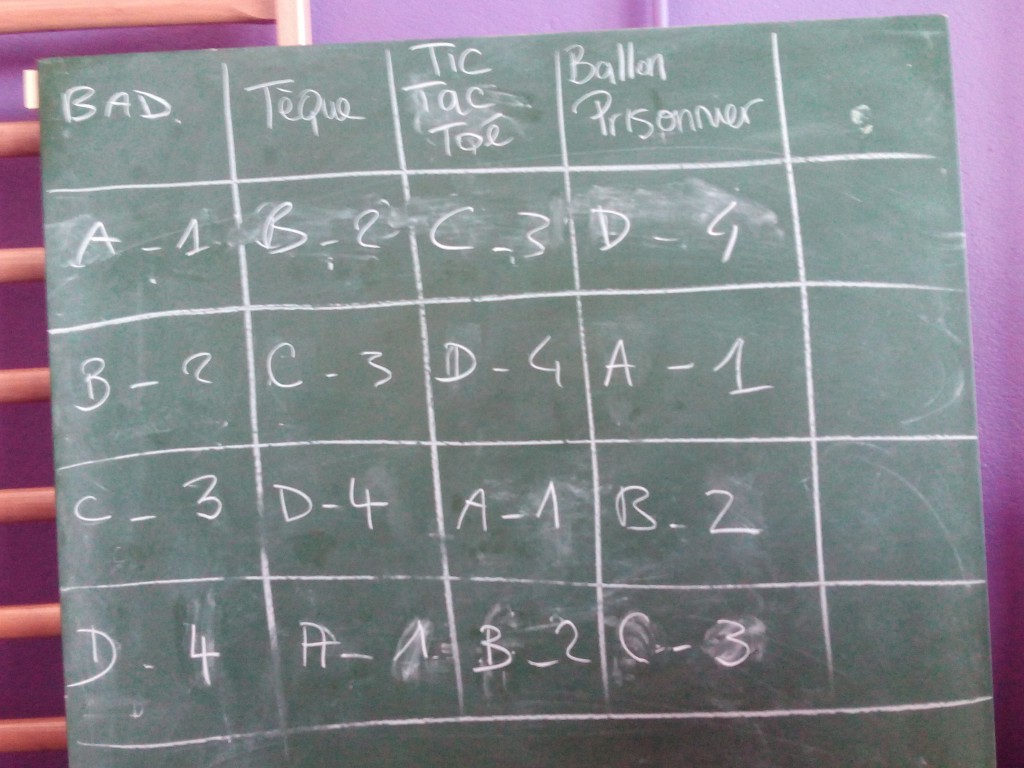 BAD. Tèque Tic Tac Toé Ballon Prisonnier
A - 1 B - 2 C - 3 D - 4
B - 2 C - 3 D - 4 A - 1
C - 3 D - 4 A - 1 B - 2
D - 4 A - 1 B - 2 C - 3